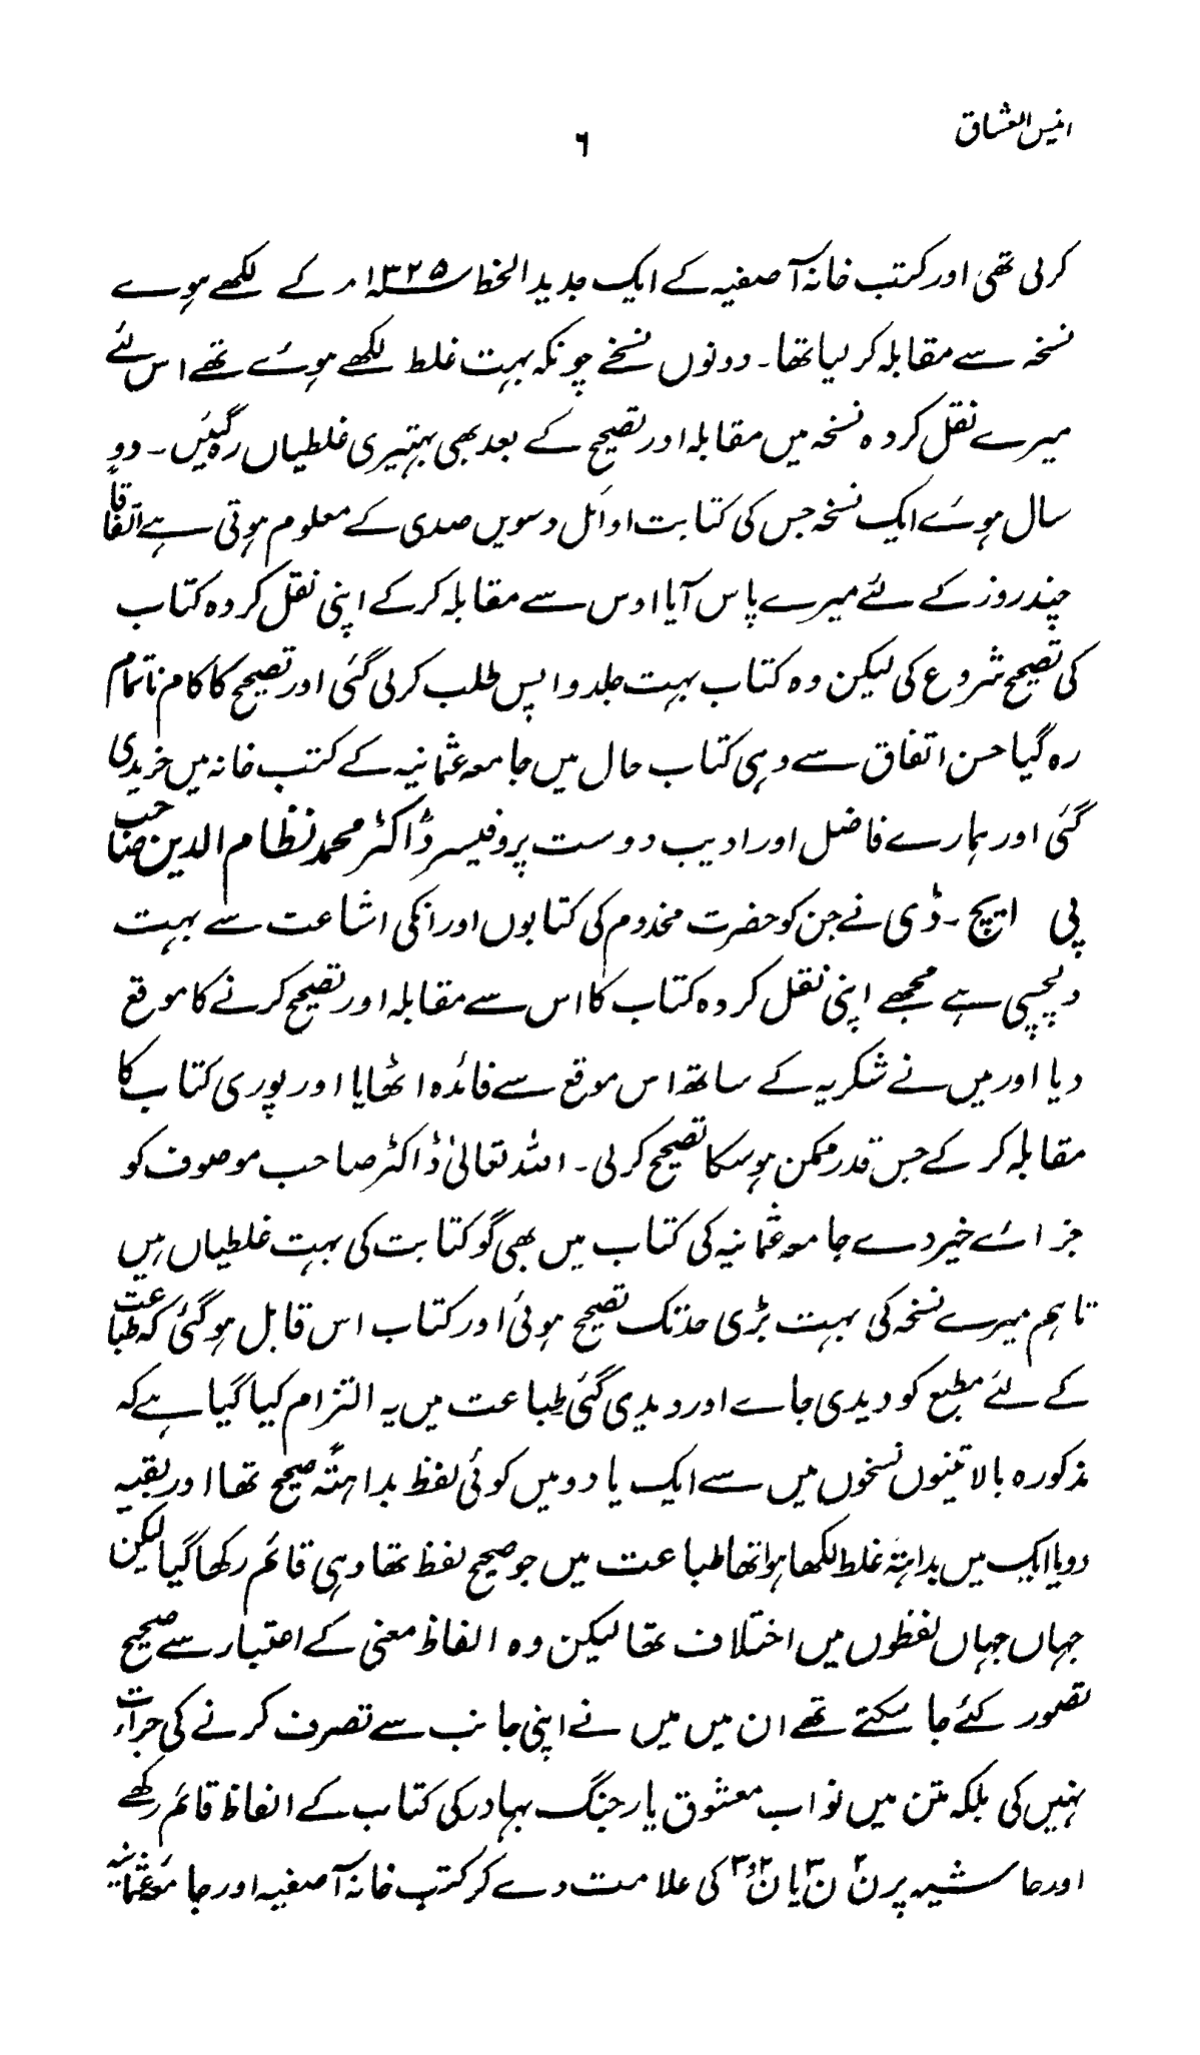 انیس العشاق
۶
کرلی تھی اور کتب خانہ آصفیہ کے ایک جدید الخط ۱۳۲۵؁ھ کے لکھے ہوے
نسخہ سے مقابلہ کر لیا تھا۔ دونوں نسخے چونکہ بہت غلط لکھے ہوئے تھے اس لئے
میرے نقل کردہ نسخہ میں مقابلہ اور تصحیح کے بعد بھی بہتیری غلطیاں رہ گئیں۔ دو
سال ہوئے ایک نسخہ جس کی کتابت اوائل دسویں صدی کے معلوم ہوتی ہے اتفاقاً
چند روز کے لئے میرے پاس آیا اوس سے مقابلہ کر کے اپنی نقل کردہ کتاب
کی تصحیح شروع کی لیکن وہ کتاب بہت جلد واپس طلب کر لی گئی اور تصحیح کا کام ناتمام
رہ گیا حسن اتفاق سے وہی کتاب حال میں جامعہ عثمانیہ کے کتب خانہ میں خریدی
گئی اور ہمارے فاضل اور ادیب دوست پروفیسر ڈاکٹر محمد نظام الدین صاحب
پی ایچ۔ ڈی نے جن کو حضرت مخدوم کی کتابوں اور انکی اشاعت سے بہت
دلچسپی ہے مجھے اپنی نقل کردہ کتاب کا اس سے مقابلہ اور تصحیح کرنے کا موقع
دیا اور میں نے شکریہ کے ساتھ اس موقع سے فائدہ اٹھایا اور پوری کتاب کا
مقابلہ کر کے جس قدر ممکن ہو سکا تصحیح کر لی۔ اللہ تعالیٰ ڈاکٹر صاحب موصوف کو
جزائے خیر دے جامعہ عثمانیہ کی کتاب میں بھی گو کتابت کی بہت غلطیاں ہیں
تاہم میرے نسخہ کی بہت بڑی حد تک تصحیح ہوئی اور کتاب اس قابل ہو گئی کہ طباعت
کے لئے مطبع کو دیدی جاے اور دیدی گئی طباعت میں یہ التزام کیا گیا ہے کہ
مذکورہ بالا تینوں نسخوں میں سے ایک یا دو میں کوئی لفظ بداہتہً صحیح تھا اور بقیہ
دو یا ایک میں بداہتہً غلط لکھا ہوا تھا طباعت میں جو صحیح لفظ تھا وہی قائم رکھا گیا لیکن
جہاں جہاں لفظوں میں اختلاف تھا لیکن وہ الفاظ معنی کے اعتبار سے صحیح
تصور کئے جا سکتے تھے ان میں میں نے اپنی جانب سے تصرف کرنے کی جرأت
نہیں کی بلکہ متن میں نواب معشوق یار جنگ بہادر کی کتاب کے الفاظ قائم رکھے
اور حاشیہ پر ن۲ ن۳ یا ن۲و۳ کی علامت دے کر کتب خانہ آصفیہ اور جامعہ عثمانیہ